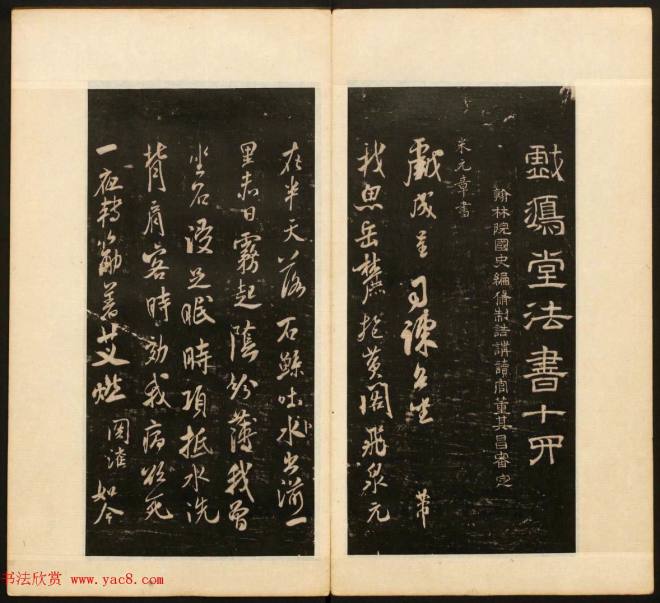 戲鴻堂法書十四
翰林院國史編脩制誥講讀官董其昌審定
米元章書
戲成呈司諫台坐 芾
我思岳麓抱黃閣飛泉元
在半天落石鯨吐水出湔一
里赤日霧起陰紛薄我曾
坐石浸足眠時項抵水洗
背肩客時効我病欲死
一夜轉筋著艾燃 關灌 如今
书法欣赏 www.yac8.com